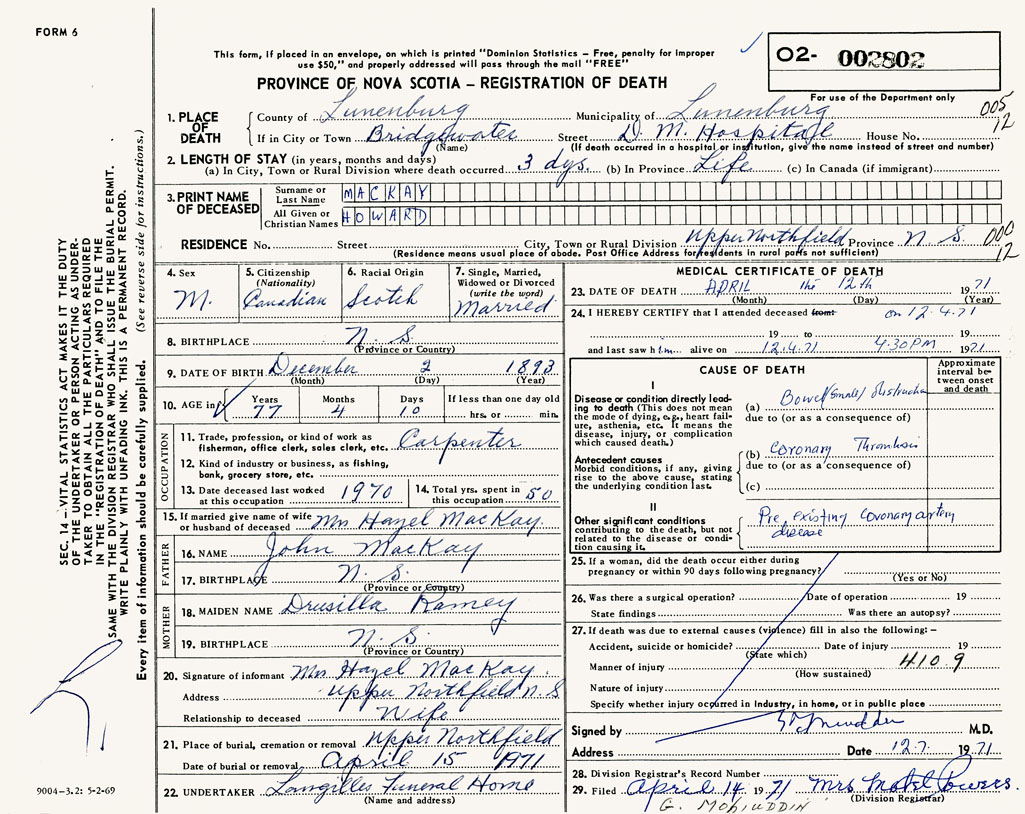 FORM 6
This form, if placed in an envelope, on which is printed "Dominion Statistics – Free, penalty for improper
use $50," and properly addressed will pass through the mail "FREE"
O2- 002802
PROVINCE OF NOVA SCOTIA – REGISTRATION OF DEATH
For use of the Department only
1. PLACE OF DEATH
County of Lunenburg Municipality of Lunenburg 005
If in City or Town Bridgewater Street D. M. Hospital House No. 12
(Name) (If death occurred in a hospital or institution, give the name instead of street and number)
2. LENGTH OF STAY (in years, months and days)
(a) In City, Town or Rural Division where death occurred 3 dys. (b) In Province Life (c) In Canada (if immigrant)
3. PRINT NAME OF DECEASED
Surname or Last Name MACKAY
All Given or Christian Names HOWARD
RESIDENCE No. Street City, Town or Rural Division Upper Northfield Province N. S. 000
(Residence means usual place of abode. Post Office Address for residents in rural parts not sufficient) 12
4. Sex M.
5. Citizenship (Nationality) Canadian
6. Racial Origin Scotch
7. Single, Married, Widowed or Divorced (write the word) Married
8. BIRTHPLACE N. S.
(Province or Country)
9. DATE OF BIRTH December 2 1893
(Month) (Day) (Year)
10. AGE in Years 77 Months 4 Days 10 If less than one day old hrs. or min.
OCCUPATION
11. Trade, profession, or kind of work as
fisherman, office clerk, sales clerk, etc. Carpenter
12. Kind of industry or business, as fishing,
bank, grocery store, etc.
13. Date deceased last worked at this occupation 1970
14. Total yrs. spent in this occupation 50
15. If married give name of wife or husband of deceased Mrs Hazel MacKay.
FATHER
16. NAME John MacKay
17. BIRTHPLACE N. S.
(Province or Country)
MOTHER
18. MAIDEN NAME Drusilla Ramey
19. BIRTHPLACE N. S.
(Province or Country)
20. Signature of informant Mrs Hazel MacKay.
Address Upper Northfield N. S
Relationship to deceased Wife
21. Place of burial, cremation or removal Upper Northfield
Date of burial or removal April 15 1971
22. UNDERTAKER Langilles Funeral Home
(Name and address)
MEDICAL CERTIFICATE OF DEATH
23. DATE OF DEATH APRIL the 12th 1971
(Month) (Day) (Year)
24. I HEREBY CERTIFY that I attended deceased from on 12.4.71
19 to 19
and last saw him alive on 12.4.71 4.30 PM 1971
CAUSE OF DEATH
Approximate interval between onset and death
I
Disease or condition directly lead-
ing to death (This does not mean
the mode of dying, e.g., heart fail-
ure, asthenia, etc. It means the
disease, injury, or complication
which caused death.)
(a) Bowel (small) obstruction
due to (or as a consequence of)
Antecedent causes
Morbid conditions, if any, giving
rise to the above cause, stating
the underlying condition last.
(b) Coronary Thrombosis
due to (or as a consequence of)
(c)
II
Other significant conditions
contributing to the death, but not
related to the disease or condi-
tion causing it.
Pre existing coronary artery
disease
25. If a woman, did the death occur either during
pregnancy or within 90 days following pregnancy?
(Yes or No)
26. Was there a surgical operation? Date of operation 19
State findings Was there an autopsy?
27. If death was due to external causes (violence) fill in also the following: –
Accident, suicide or homicide? Date of injury 19
(State which)
Manner of injury 410 9
(How sustained)
Nature of injury
Specify whether injury occurred in industry, in home, or in public place
Signed by M.D.
Address Date 12.7. 1971
28. Division Registrar's Record Number
29. Filed April 14 1971 Mrs Powers.
(Division Registrar)
G. MOHIUDDIN
SEC. 14 – VITAL STATISTICS ACT MAKES IT THE DUTY
OF THE UNDERTAKER OR PERSON ACTING AS UNDER-
TAKER TO OBTAIN ALL THE PARTICULARS REQUIRED
IN THE "REGISTRATION OF DEATH" AND TO FILE THE
SAME WITH THE DIVISION REGISTRAR WHO SHALL ISSUE THE BURIAL PERMIT.
WRITE PLAINLY WITH UNFADING INK. THIS IS A PERMANENT RECORD.
Every item of information should be carefully supplied. (See reverse side for instructions.)
9004–3.2: 5-2-69